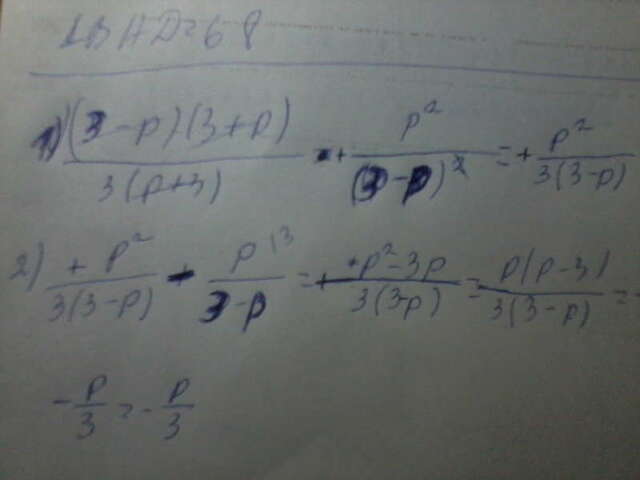 1) (3-p)(3+p) / 3(p+3) · + p² / (3-p)² = + p² / 3(3-p)
2) + p² / 3(3-p) - p^{\3} / 3-p = + p²-3p / 3(3-p) = p(p-3) / 3(3-p) = -
-p/3 = -p/3